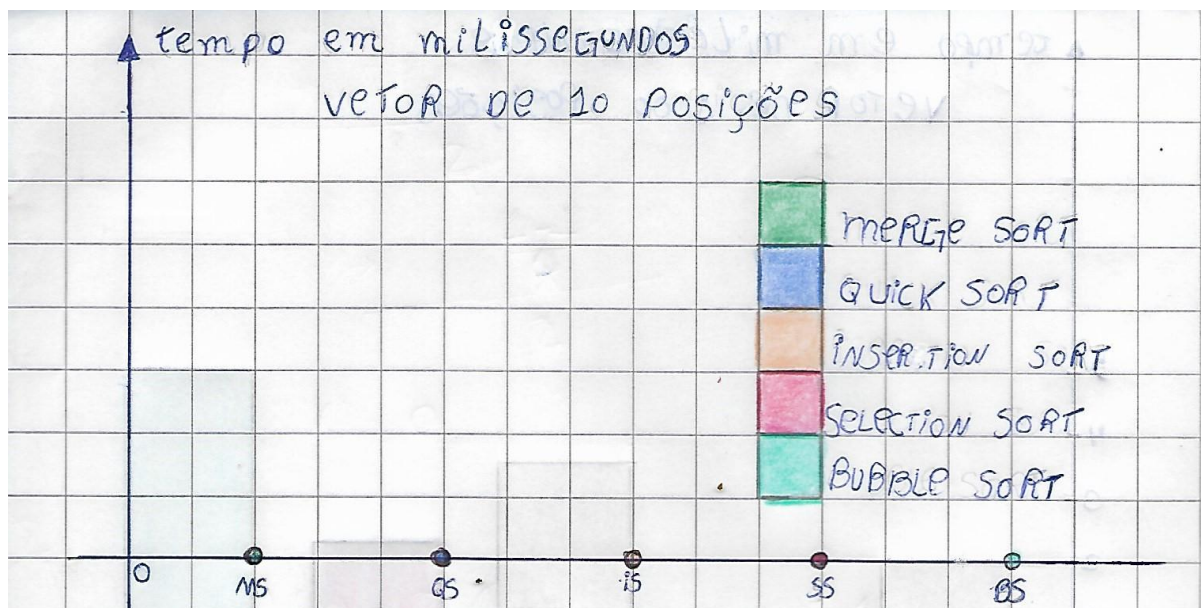 tempo em miLiSSEGUNDOS
VeToR De 10 PoSiÇÕeS
meRGe SoRT
QUiCK SoRT
iNSeRTioN SoRT
SeLeCTioN SoRT
BUBBLe SoRT
0
MS
QS
iS
SS
BS